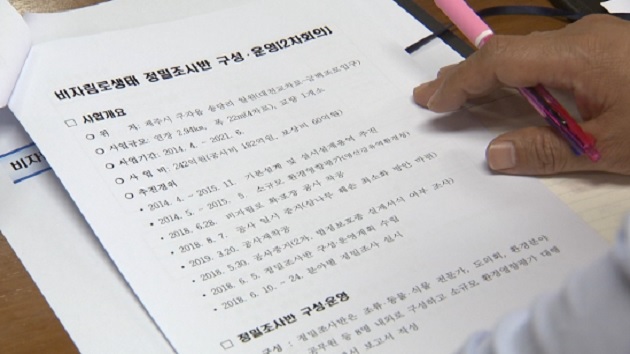 비자림로생태 정밀조사반 구성·운영(2차회의)
□ 사업개요
○ 위 치: 제주시 구좌읍 송당리 일원(대천교차로~금백조로입구)
○ 사업규모: 연장 2.94km, 폭 22m(4차로), 교량 1개소
○ 사업기간: 2014. 4. ~ 2021. 6.
○ 사 업 비: 242억원(공사비 182억원, 보상비 60억원)
○ 추진경위
• 2014. 4. ~ 2015. 11. 기본설계 및 실시설계용역 추진
• 2014. 5. ~ 2015. 5. 소규모 환경영향평가
• 2018. 6.28. 비자림로 확포장 공사 착공
• 2018. 8. 7. 공사 일시 중지(삼나무 훼손 최소화 방안 마련)
• 2019. 3.20. 공사재착공
• 2018. 5.30. 공사중지(2차, 법정보호종 실제서식 여부 조사)
• 2018. 6. 5. 정밀조사반 구성운영계획 수립
• 2018. 6. 10. ~ 24. 분야별 정밀조사 실시
정밀조사반 구성운영
구성 : 정밀조사반은 조류·동물·식물 전문가, 도의회, 환경분야
공무원 등 8명 내외로 구성하고 소규모 환경영향평가 대행
보고서 작성
비자